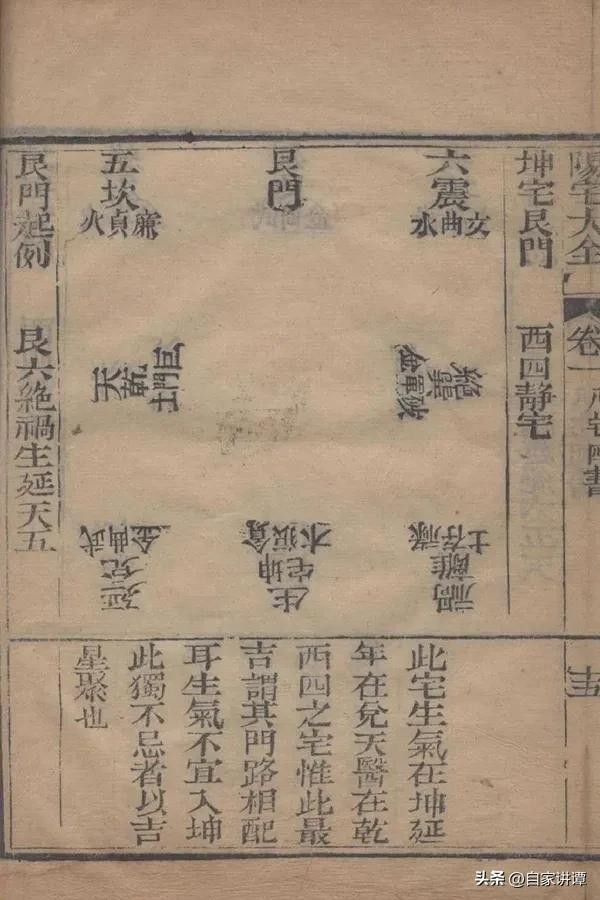 陽宅大全 卷一 八宅四書
十五
坤宅艮門 西四靜宅
六震
文曲水
艮門
五坎
廉貞火
絕巽
破軍金
天乾
巨門土
禍離
祿存土
生坤宅
貪狼木
延兌
武曲金
艮門起例 艮六絕禍生延天五
此宅生氣在坤延
年在兌天醫在乾
西四之宅惟此最
吉謂其門路相配
耳生氣不宜入坤
此獨不忌者以吉
星聚也
头条 @自家讲谭